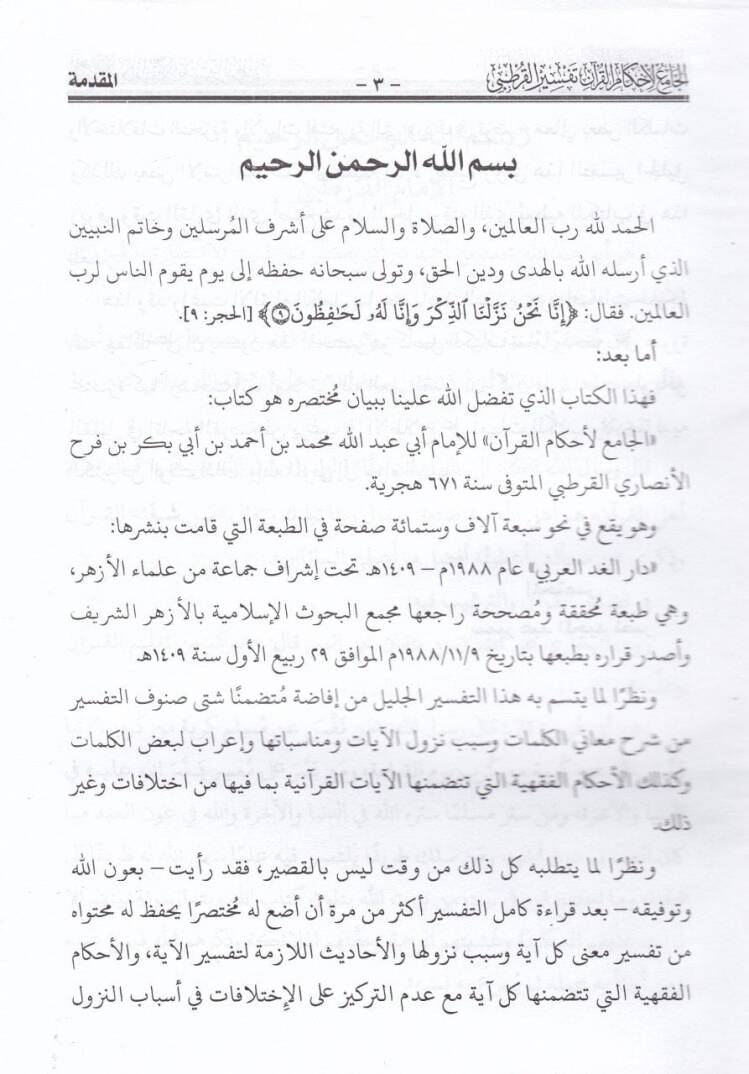 الجامع لأحكام القرآن تفسير القرطبي - ٣ - المقدمة
بسم الله الرحمن الرحيم
الحمد لله رب العالمين، والصلاة والسلام على أشرف المرسلين وخاتم النبيين
الذي أرسله الله بالهدى ودين الحق، وتولى سبحانه حفظه إلى يوم يقوم الناس لرب
العالمين. فقال: ﴿إِنَّا نَحْنُ نَزَّلْنَا ٱلذِّكْرَ وَإِنَّا لَهُۥ لَحَـٰفِظُونَ ۝٩﴾ [الحجر: ٩].
أما بعد:
فهذا الكتاب الذي تفضل الله علينا ببيان مُختصره هو كتاب:
«الجامع لأحكام القرآن» للإمام أبي عبد الله محمد بن أحمد بن أبي بكر بن فرح
الأنصاري القرطبي المتوفى سنة ٦٧١ هجرية.
وهو يقع في نحو سبعة آلاف وستمائة صفحة في الطبعة التي قامت بنشرها:
«دار الغد العربي» عام ١٩٨٨م - ١٤٠٩هـ تحت إشراف جماعة من علماء الأزهر،
وهي طبعة مُحققة ومُصححة راجعها مجمع البحوث الإسلامية بالأزهر الشريف
وأصدر قراره بطبعها بتاريخ ١٩٨٨/١١/٩م الموافق ٢٩ ربيع الأول سنة ١٤٠٩هـ
ونظرًا لما يتسم به هذا التفسير الجليل من إفاضة مُتضمنًا شتى صنوف التفسير
من شرح معاني الكلمات وسبب نزول الآيات ومناسباتها وإعراب لبعض الكلمات
وكذلك الأحكام الفقهية التي تتضمنها الآيات القرآنية بما فيها من اختلافات وغير
ذلك.
ونظرًا لما يتطلبه كل ذلك من وقت ليس بالقصير، فقد رأيت – بعون الله
وتوفيقه – بعد قراءة كامل التفسير أكثر من مرة أن أضع له مُختصرًا يحفظ له محتواه
من تفسير معنى كل آية وسبب نزولها والأحاديث اللازمة لتفسير الآية، والأحكام
الفقهية التي تتضمنها كل آية مع عدم التركيز على الإختلافات في أسباب النزول